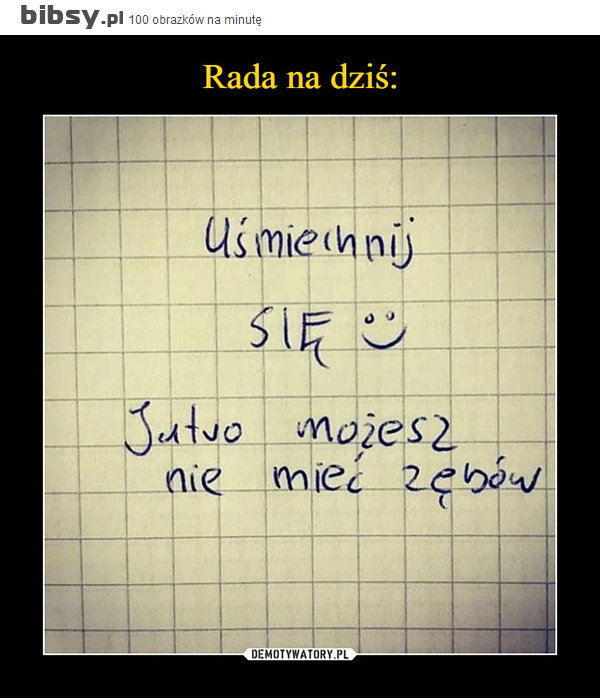 bibsy.pl 100 obrazków na minutę
Rada na dziś:
Uśmiechnij
SIĘ
Jutro możesz
nie mieć zębów
DEMOTYWATORY.PL